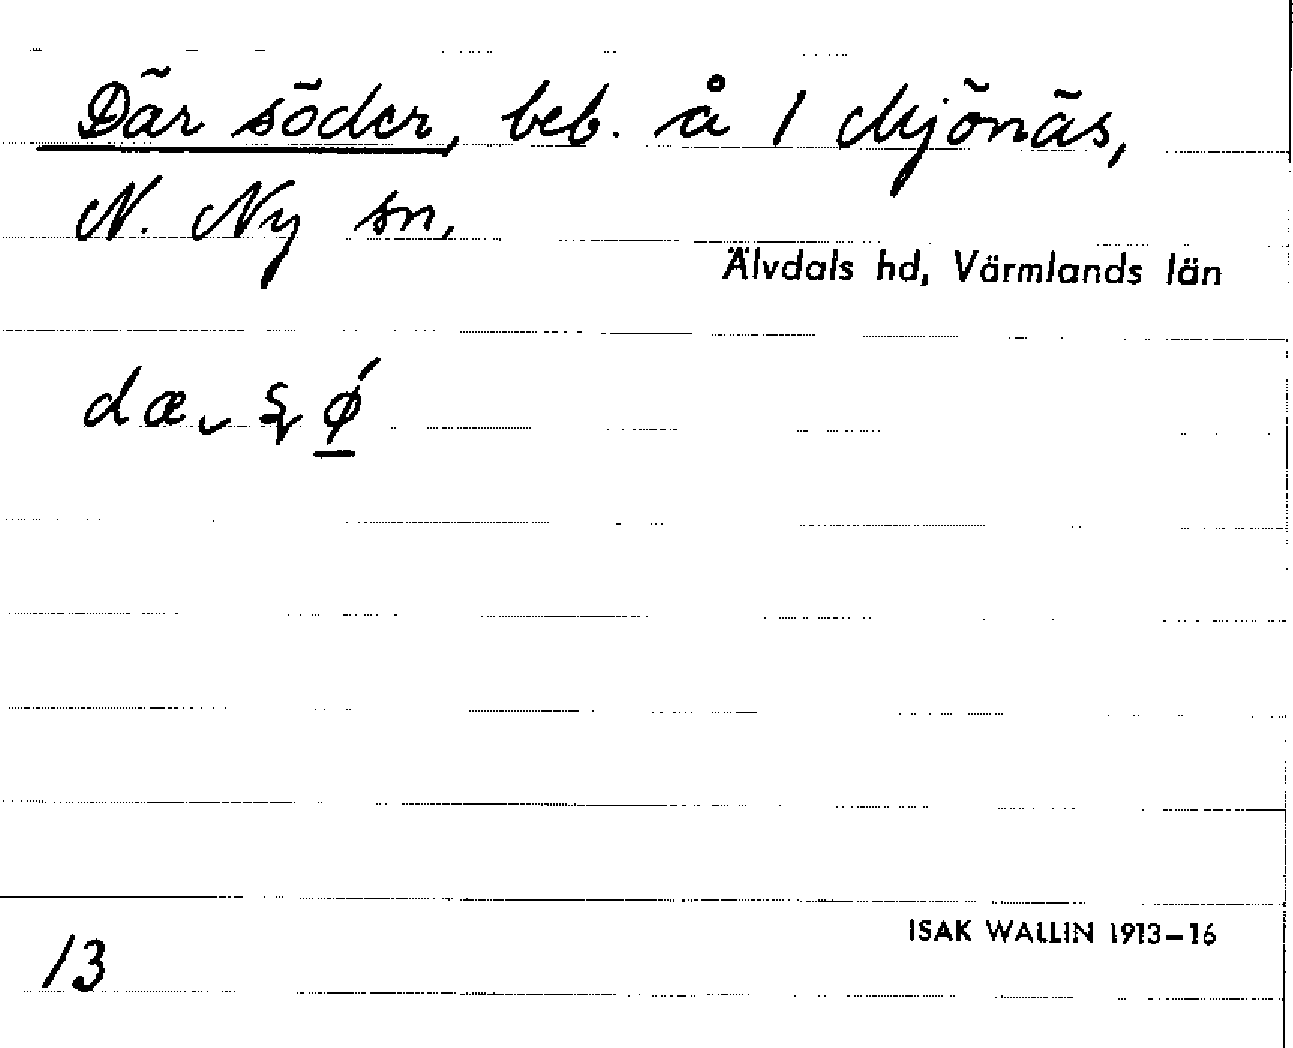 Där söder, beb. å 1 Mjönäs,
N. Ny sn.
Älvdals hd, Värmlands län
ISAK WALLIN 1913–16
13